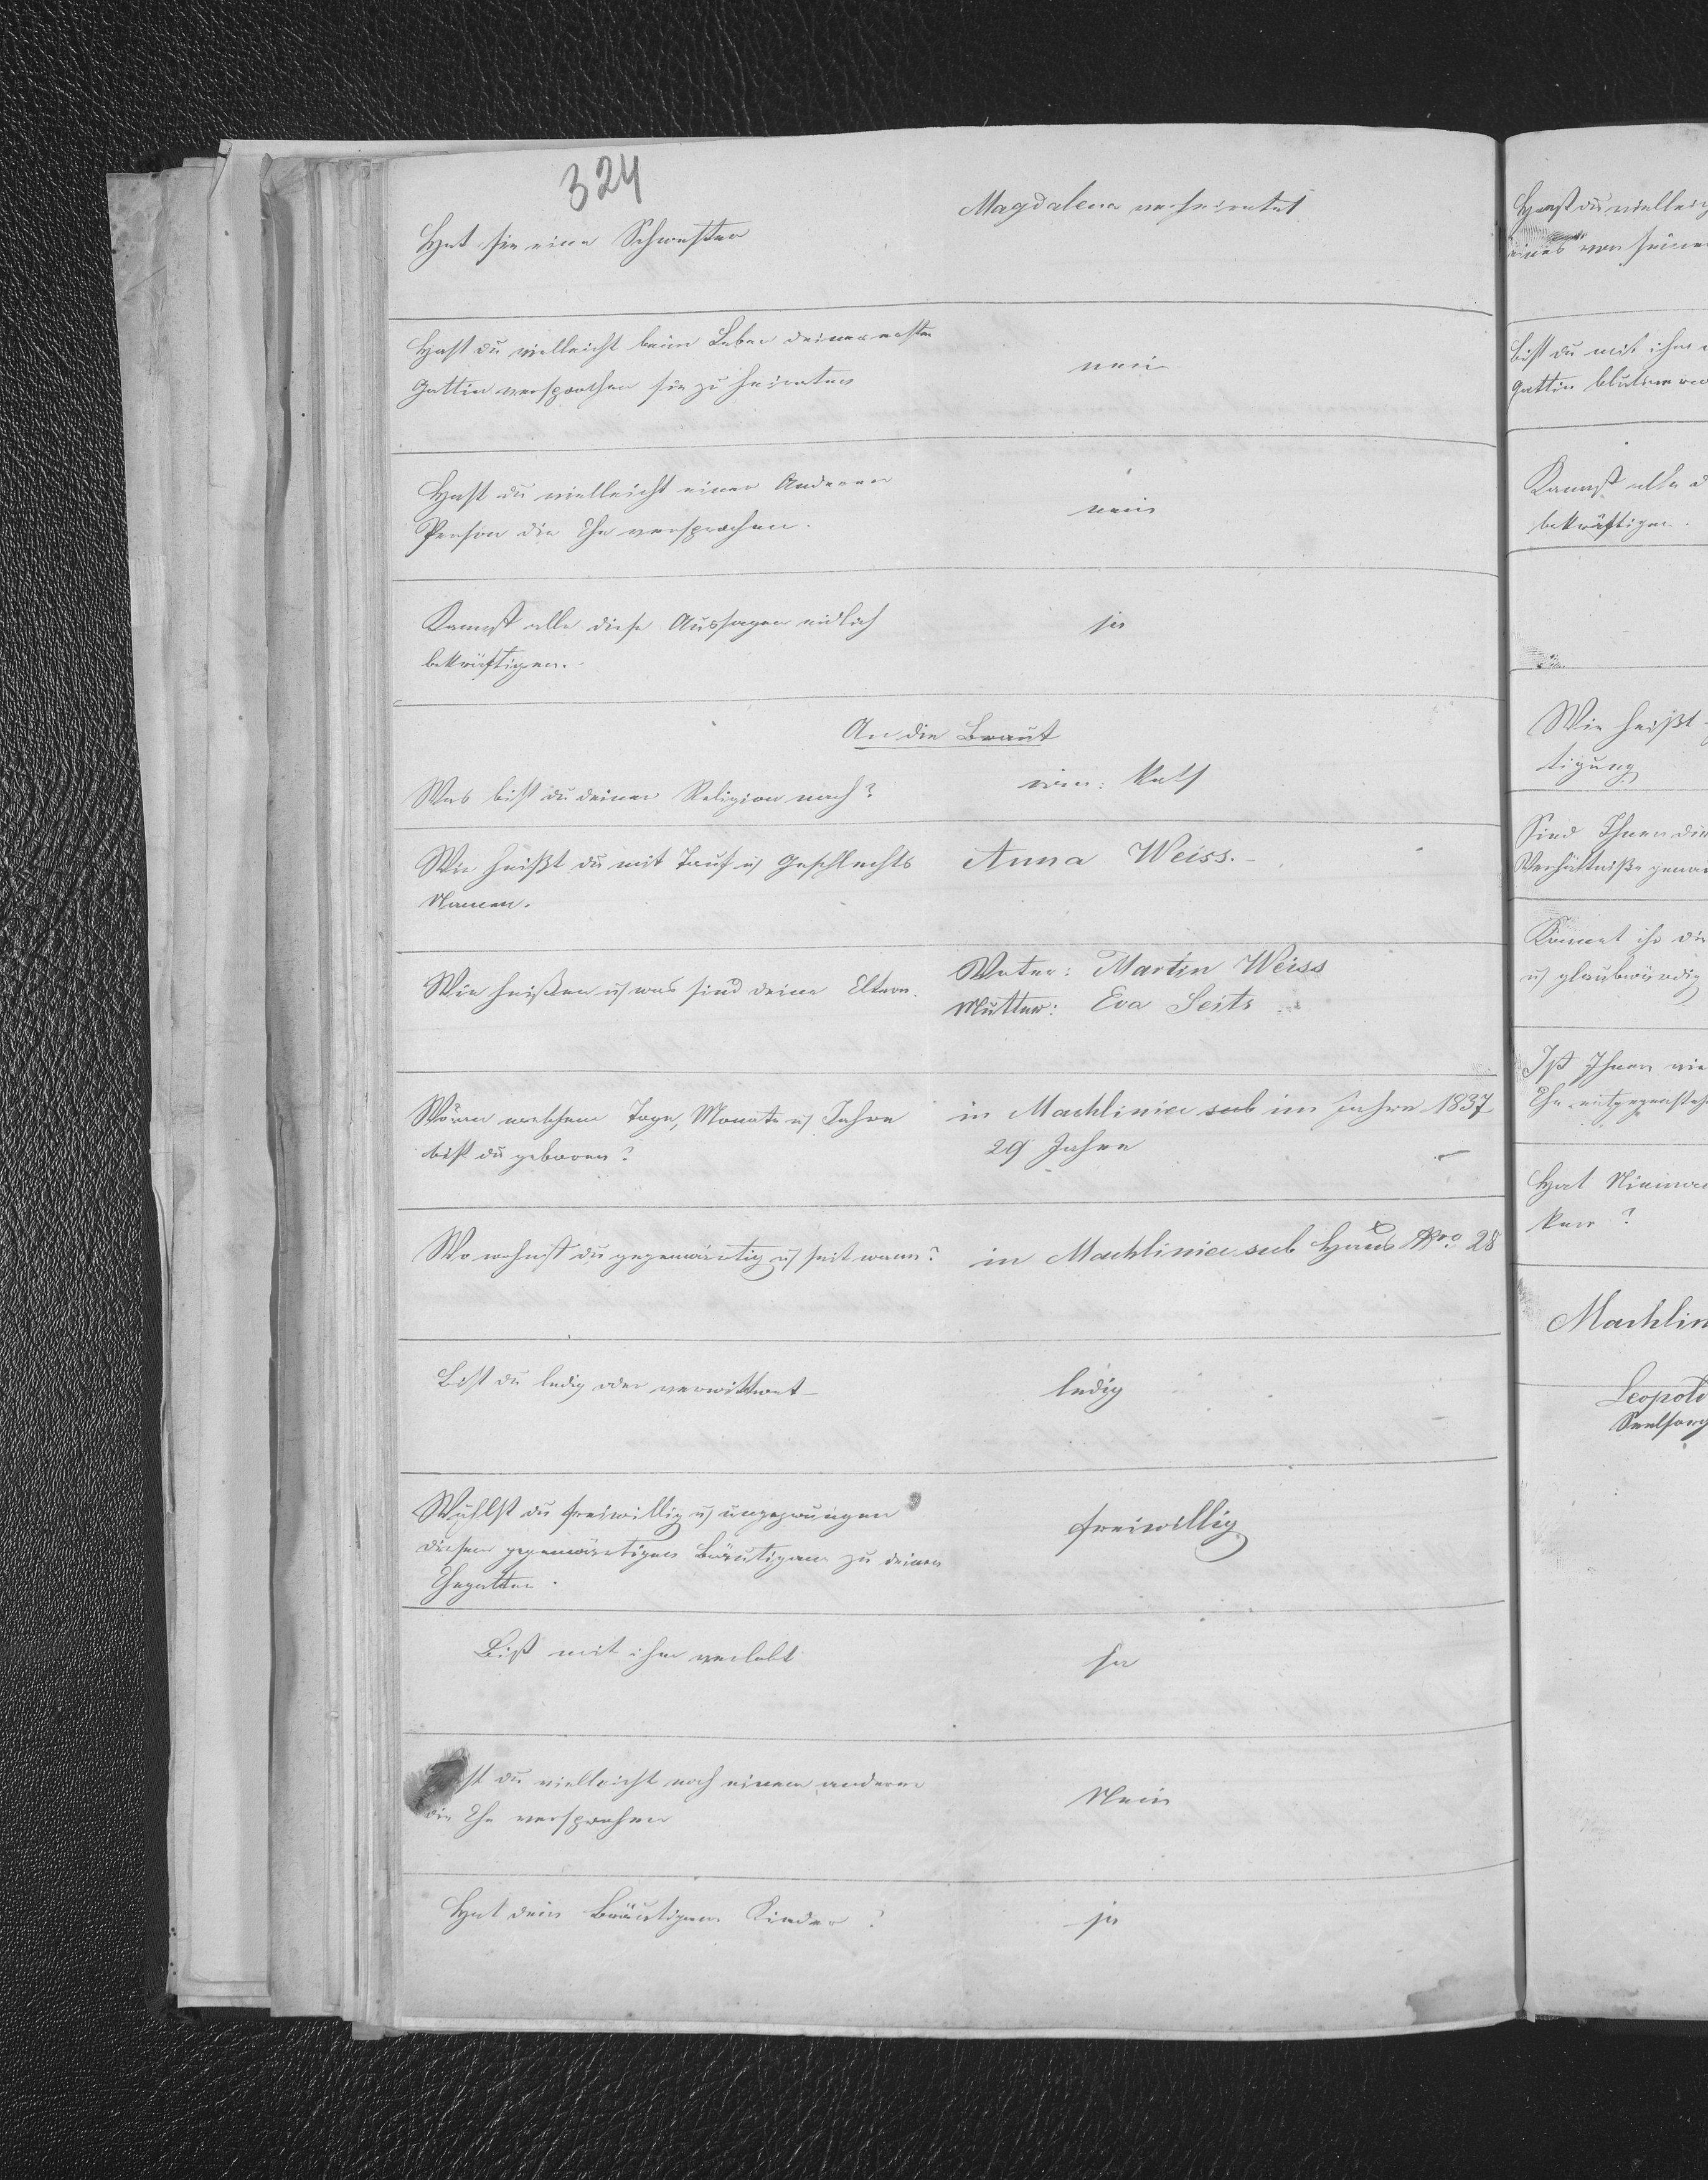 324
Hat sie eine Schwester
Magdalena verheiratet
Hast du vielleicht beim Leben deiner ersten
Gattin versprochen sie zu heiraten
nein
Hast du vielleicht einer Anderen
Person die Ehe versprochen.
nein
Kannst alle diese Aussagen eidlich
bekräftigen.
ja
An die Braut
Was bist du deiner Religion nach?
röm: kath
Wie heißt du mit Tauf u Geschlechts
Namen.
Anna Weiss.
Wie heißen u was sind deine Eltern.
Vater: Martin Weiss
Mutter: Eva Seits
welchem Tage, Monate u Jahre
bist du geboren?
in Machlinice sub im Jahre 1837
29 Jahre
Wo wohnst du gegenwärtig u seit wann?
in Machlinice sub Haus Nro 28
Bist du ledig oder verwittwet
ledig
Wählst du freiwillig u ungezwungen
diesen gegenwärtigen Bräutigam zu deinen
Ehegatten.
freiwillig
Bist mit ihm verlobt
ja
Hast du vielleicht noch einem anderen
die Ehe versprochen
Nein
Hat dein Bräutigam Kinder?
ja
Hast du vielleic
eines von seine
bist du mit ihm
Gattin blutsver
Kannst alle d
bekräftigen.
Wie heißt
tigung
Sind Ihnen die
Verhältniße gena
Könnet ihr die
u glaubwürdig
Ist Ihnen
Ehe entgegensteh
Hat Nieman
ken?
Machlin
Leopold
Seelsorg